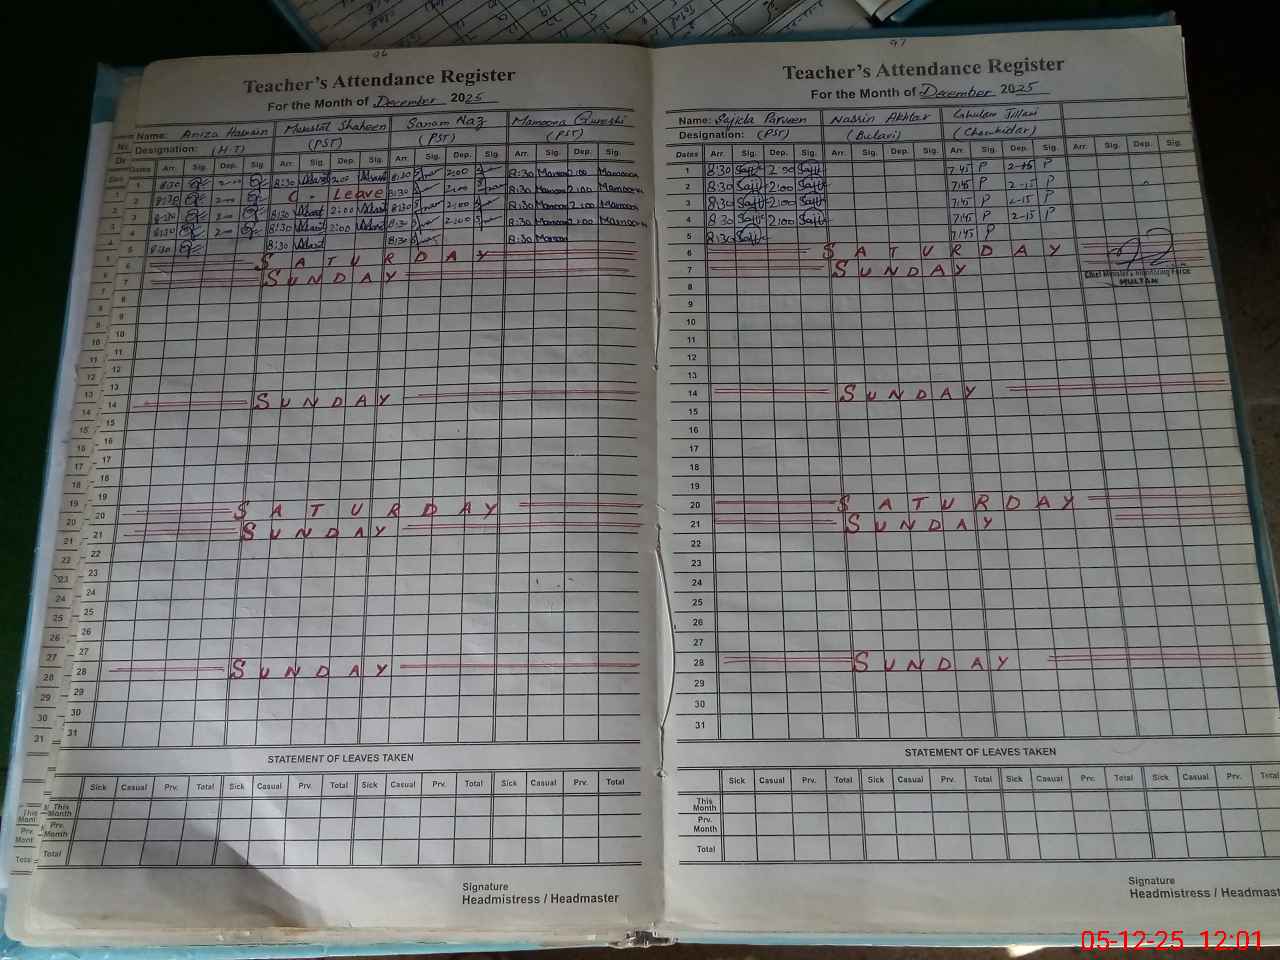 96
Teacher's Attendance Register
For the Month of December 2025
Name: Aniza Hassain Musstat Shaheen Sanam Naz Mamoona Qureshi
Designation: (H.T) (PST) (PST) (PST)
Dates Arr. Sig. Dep. Sig. Arr. Sig. Dep. Sig. Arr. Sig. Dep. Sig. Arr. Sig. Dep. Sig.
1 8:30 2:00 8:30 2:00 8:30 2:00 8:30 Mamoona 2:00 Mamoona
2 8:30 2:00 C. Leave 8:30 2:00 8:30 Mamoona 2:00 Mamoona
3 8:30 2:00 8:30 2:00 8:30 2:00 8:30 Mamoona 2:00 Mamoona
4 8:30 2:00 8:30 2:00 8:30 2:00 8:30 Mamoona 2:00 Mamoona
5 8:30 8:30 8:30 8:30 Mamoona
6 SATURDAY
7 SUNDAY
8
9
10
11
12
13
14 SUNDAY
15
16
17
18
19
20 SATURDAY
21 SUNDAY
22
23
24
25
26
27
28 SUNDAY
29
30
31
STATEMENT OF LEAVES TAKEN
Sick Casual Prv. Total Sick Casual Prv. Total Sick Casual Prv. Total Sick Casual Prv. Total
This Month
Prv. Month
Total
Signature
Headmistress / Headmaster
97
Teacher's Attendance Register
For the Month of December 2025
Name: Sajida Parveen Nassin Akhtar Ghulam Jillani
Designation: (PST) (Bulavi) (Chowkidar)
Dates Arr. Sig. Dep. Sig. Arr. Sig. Dep. Sig. Arr. Sig. Dep. Sig. Arr. Sig. Dep. Sig.
1 8:30 2:00 7:45 P 2-15 P
2 8:30 2:00 7:45 P 2-15 P
3 8:30 2:00 7:45 P 2-15 P
4 8:30 2:00 7:45 P 2-15 P
5 8:30 7:45 P
6 SATURDAY
7 SUNDAY
Chief Minister's Monitoring Force
MULTAN
8
9
10
11
12
13
14 SUNDAY
15
16
17
18
19
20 SATURDAY
21 SUNDAY
22
23
24
25
26
27
28 SUNDAY
29
30
31
STATEMENT OF LEAVES TAKEN
Sick Casual Prv. Total Sick Casual Prv. Total Sick Casual Prv. Total Sick Casual Prv. Total
This Month
Prv. Month
Total
Signature
Headmistress / Headmast
05-12-25 12:01